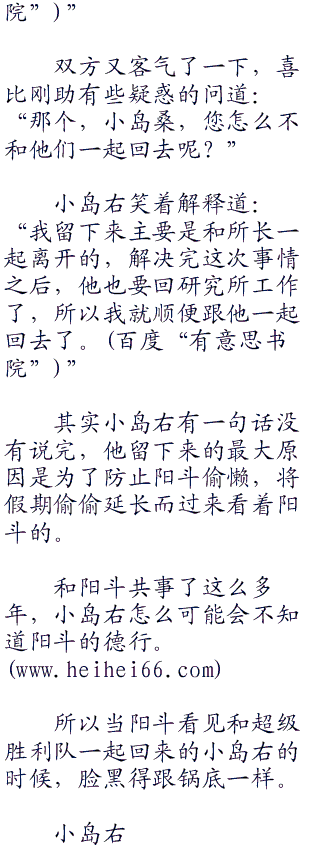 院”)”
双方又客气了一下，喜
比刚助有些疑惑的问道：
“那个，小岛桑，您怎么不
和他们一起回去呢？”
小岛右笑着解释道：
“我留下来主要是和所长一
起离开的，解决完这次事情
之后，他也要回研究所工作
了，所以我就顺便跟他一起
回去了。(百度“有意思书
院”)”
其实小岛右有一句话没
有说完，他留下来的最大原
因是为了防止阳斗偷懒，将
假期偷偷延长而过来看着阳
斗的。
和阳斗共事了这么多
年，小岛右怎么可能会不知
道阳斗的德行。
(www.heihei66.com)
所以当阳斗看见和超级
胜利队一起回来的小岛右的
时候，脸黑得跟锅底一样。
小岛右